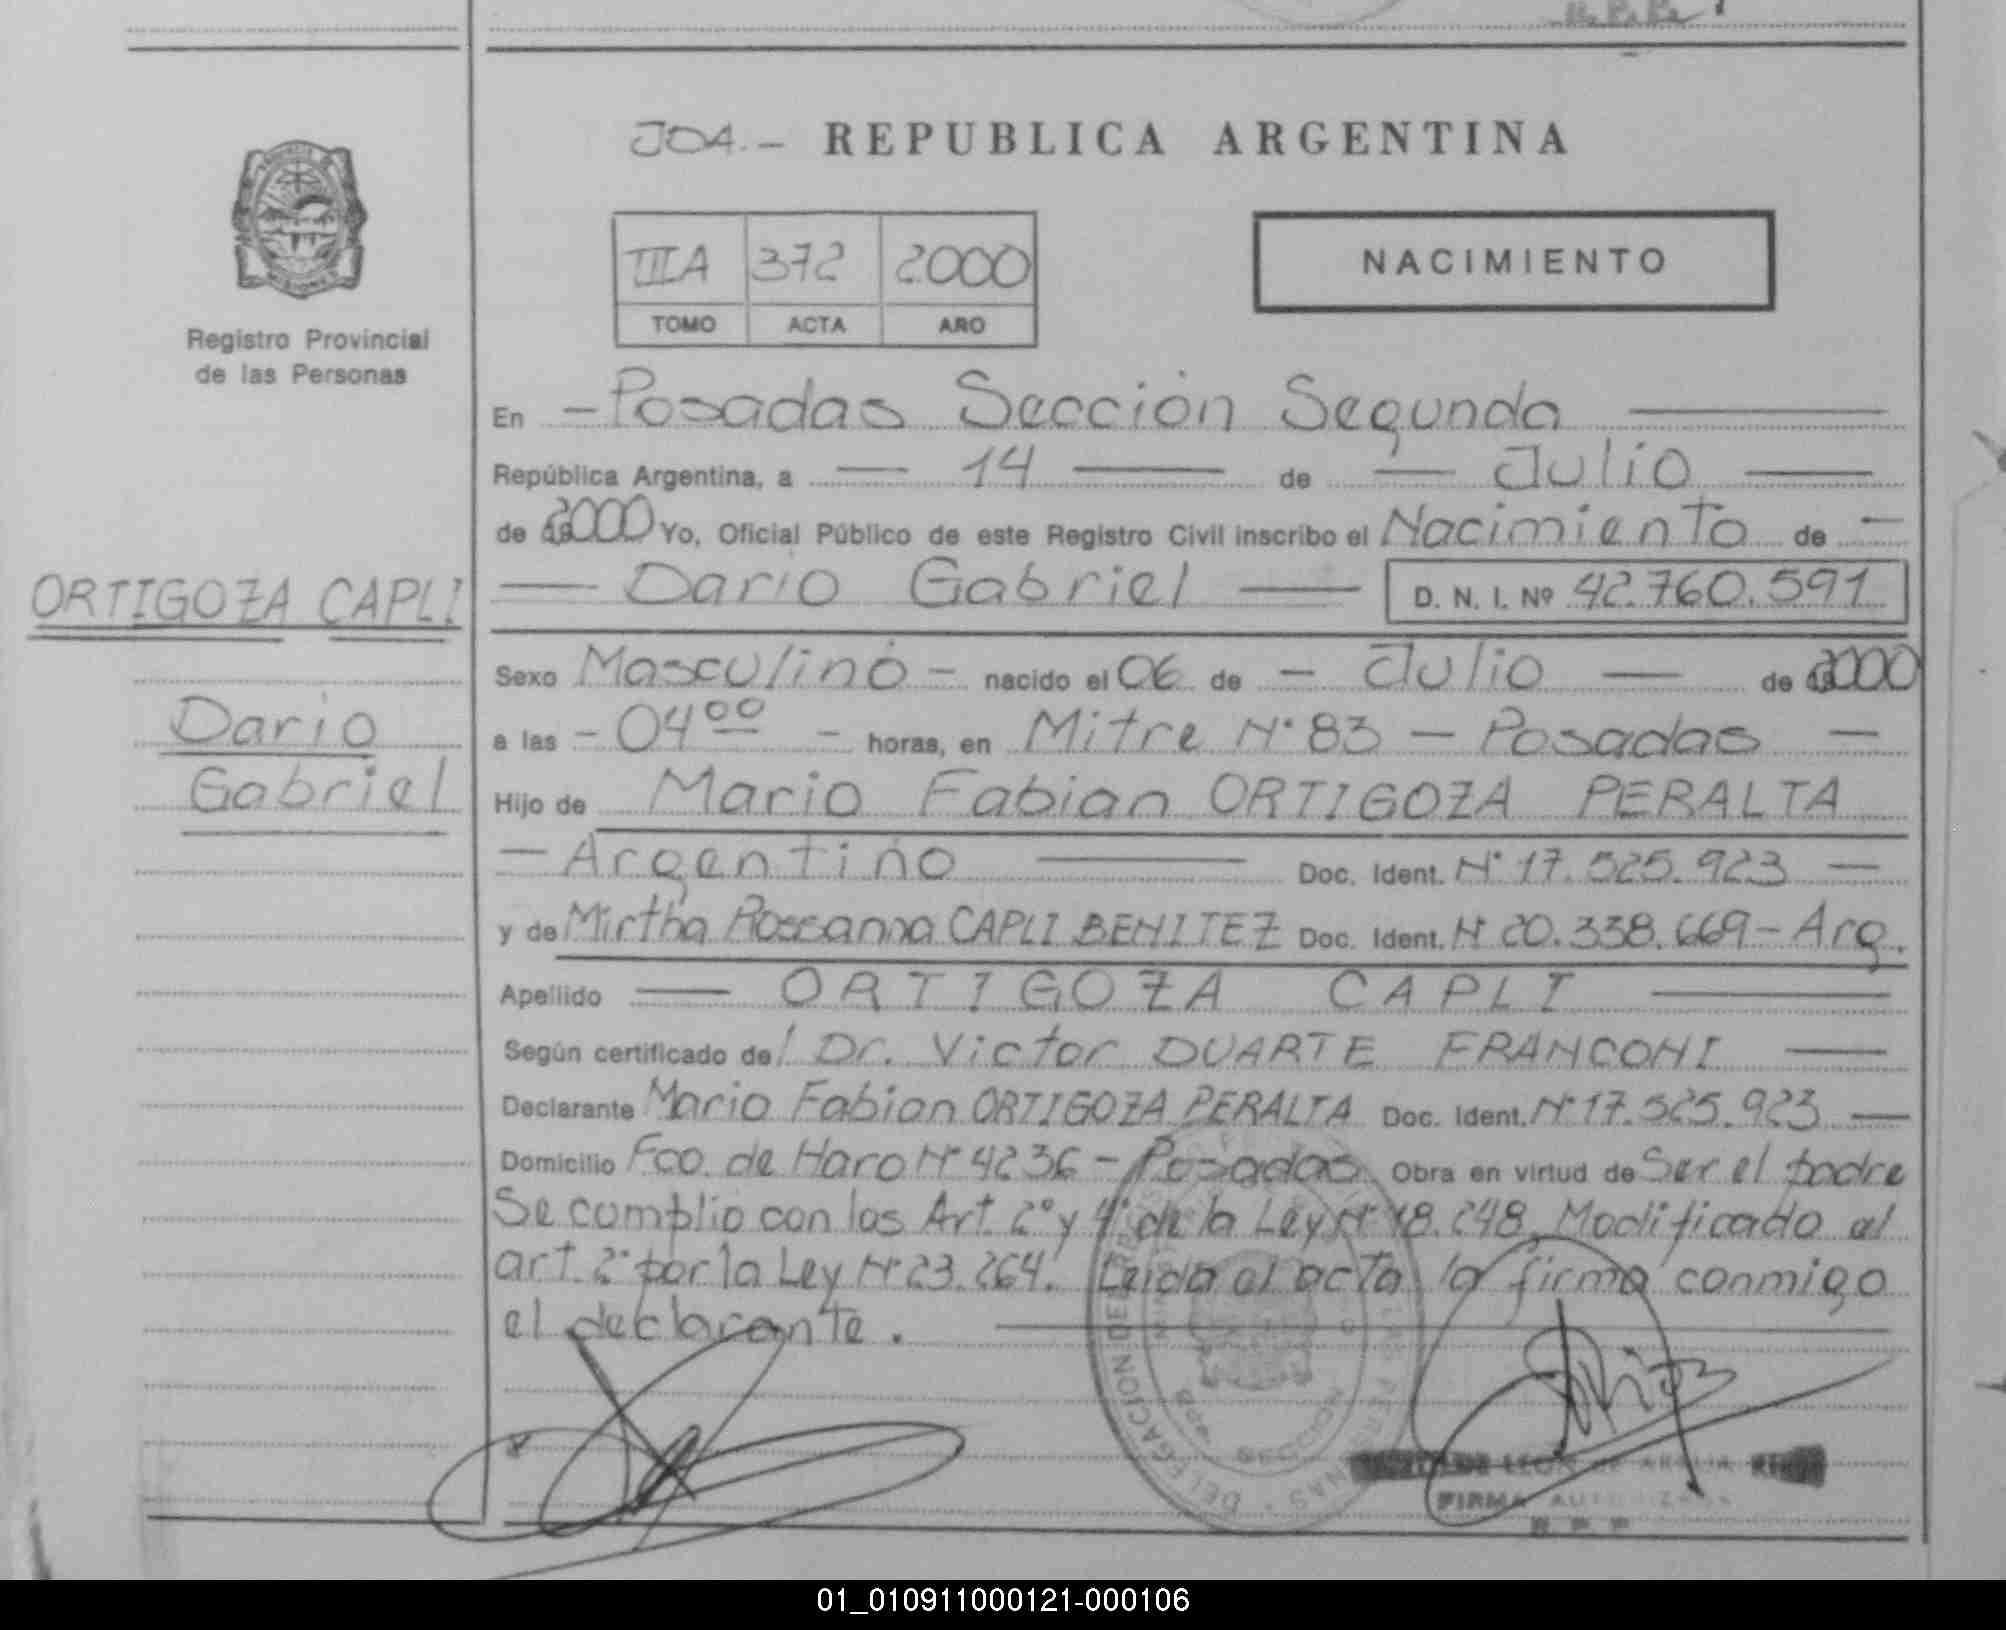 JOA.- REPUBLICA ARGENTINA
IIIA 372 2000
TOMO ACTA AÑO
NACIMIENTO
Registro Provincial
de las Personas
En - Posadas Sección Segunda
República Argentina, a 14 de Julio
de 2000 Yo, Oficial Público de este Registro Civil inscribo el Nacimiento de
Dario Gabriel D. N. I. Nº 42.760.591
ORTIGOZA CAPLI
Dario
Gabriel
Sexo Masculino - nacido el 06 de - Julio de 2000
a las - 04⁰⁰ - horas, en Mitre Nº 83 - Posadas
Hijo de Mario Fabian ORTIGOZA PERALTA
- Argentino Doc. Ident. Nº 17.525.923
y de Mirtha Rossanna CAPLI BENITEZ Doc. Ident. Nº 20.338.669 - Arg.
Apellido ORTIGOZA CAPLI
Según certificado del Dr. Victor DUARTE FRANCONI
Declarante Mario Fabian ORTIGOZA PERALTA Doc. Ident. Nº 17.525.923
Domicilio Fco. de Haro Nº 4236 - Posadas Obra en virtud de Ser el padre
Se cumplio con los Art. 2º y 4º de la Ley Nº 18.248, Modificado el
art. 2º por la Ley Nº 23.264. Leida el acta la firma conmigo
el declarante.
FIRMA AUTORIZADA
R. P. P.
01_010911000121-000106